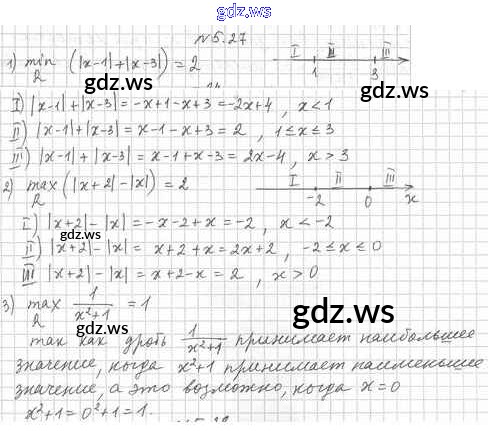 gdz.ws
№5.27
1) min (|x-1|+|x-3|) = 2
R
I II III
1 3
I) |x-1|+|x-3| = -x+1-x+3 = -2x+4 , x<1
II) |x-1|+|x-3| = x-1-x+3 = 2 , 1≤x≤3
III) |x-1|+|x-3| = x-1+x-3 = 2x-4 , x>3
2) max (|x+2|-|x|) = 2
R
I II III
-2 0 x
I) |x+2|-|x| = -x-2+x = -2 , x<-2
gdz.ws
II) |x+2|-|x| = x+2+x = 2x+2 , -2≤x≤0
III |x+2|-|x| = x+2-x = 2 , x>0
3) max 1/(x²+1) = 1
R
gdz.ws
gdz.ws
так как дробь 1/(x²+1) принимает наибольшее
значение, когда x²+1 принимает наименьшее
значение, а это возможно, когда x=0
x²+1=0²+1=1.
gdz.ws
gdz.ws